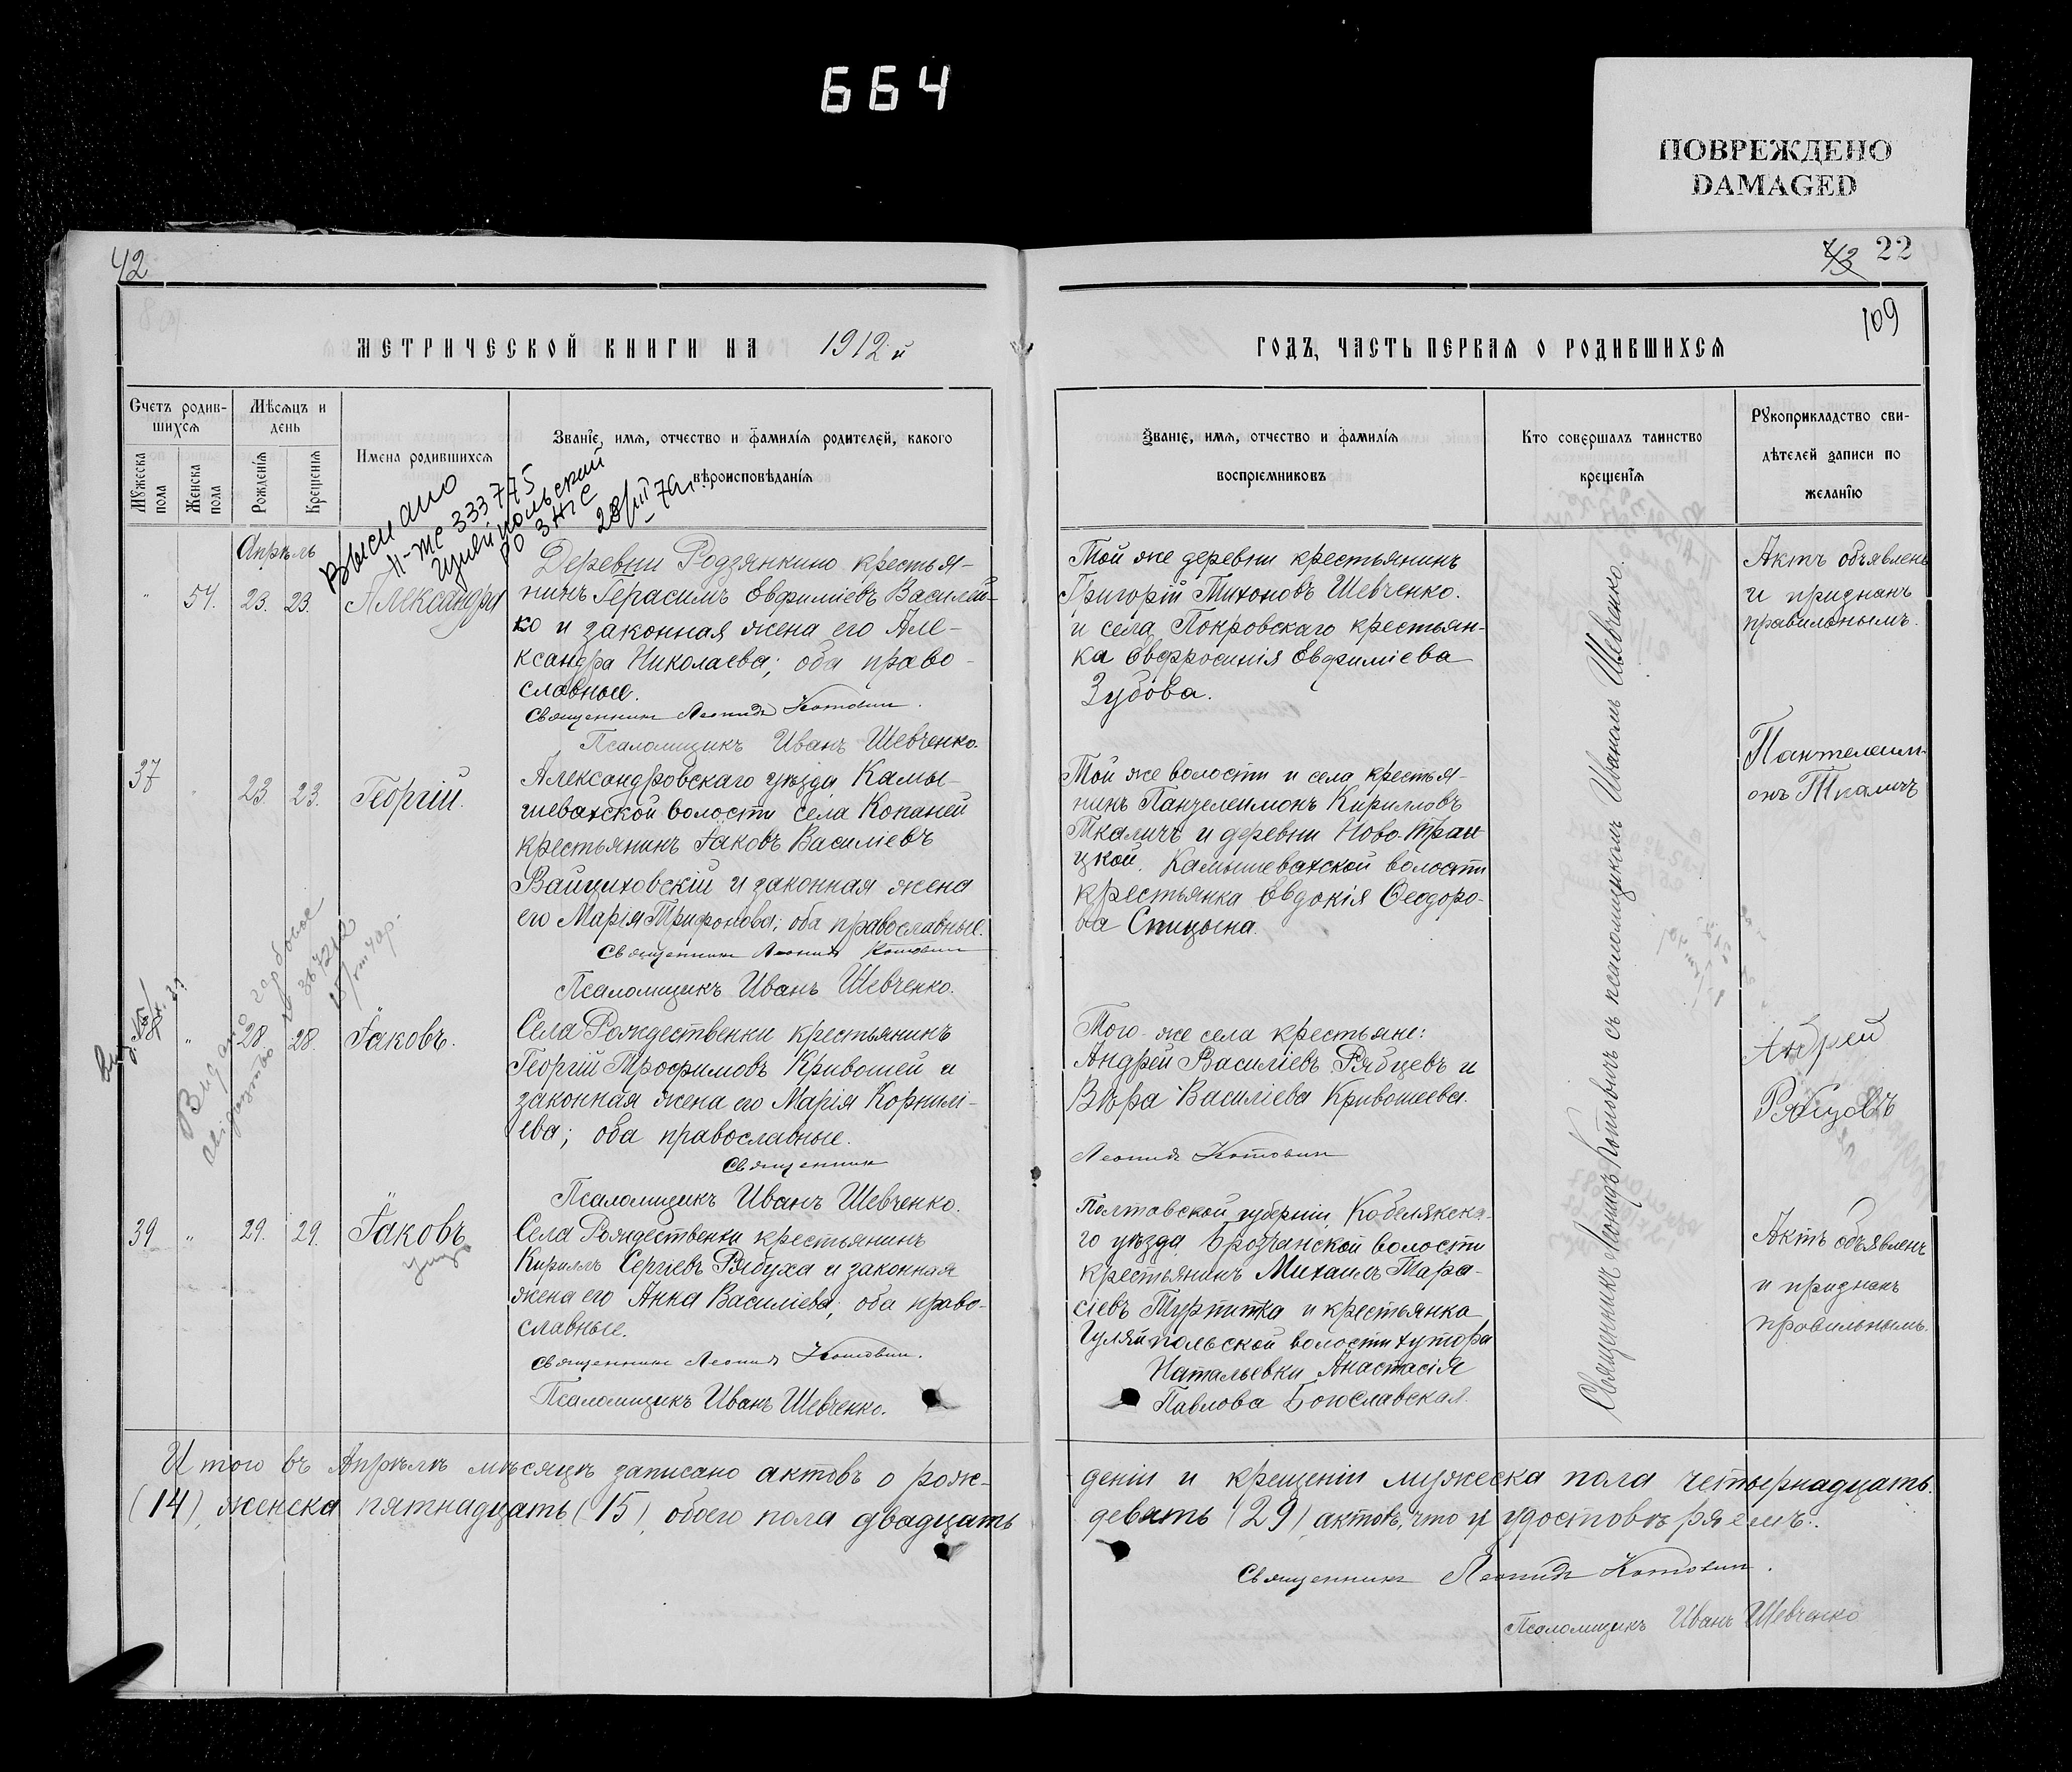 664
ПОВРЕЖДЕНО
DAMAGED
42
МЕТРИЧЕСКОЙ КНИГИ НА 1912й
Счетъ родив-
шихся
Мѣсяцъ и
день
Мужеска пола
Женска пола
Рожденія
Крещенія
Имена родившихся
Званіе, имя, отчество и фамилія родителей, какого
вѣроисповѣданія
Выслано
II-ЖС 333775
Гуляйпольский
РО ЗАГС
Апрѣль
" 54. 23. 23. Александра
Деревни Родзянкино крестья-
нинъ Герасимъ Евфиміевъ Василей-
ко и законная жена его Але-
ксандра Николаева; оба право-
славные.
Священникъ Леонидъ Котович.
Псаломщикъ Иванъ Шевченко.
37 " 23. 23. Георгій.
Александровскаго уѣзда, Камы-
шеватской волости села Копаней
крестьянинъ Іаковъ Василіевъ
Вайциховскій и законная жена
его Марія Трифонова; оба православные.
Священникъ Леонидъ Котович
Псаломщикъ Иванъ Шевченко.
38 " 28. 28. Іаковъ.
Выдано
Села Рождественки крестьянинъ
Георгій Трофимовъ Кривошей и
законная жена его Марія Корнилі-
ева; оба православные.
Священник
Псаломщикъ Иванъ Шевченко.
39 " 29. 29. Іаковъ
Села Рождественки крестьянинъ
Кириллъ Сергіевъ Рябуха и законная
жена его Анна Василіева; оба право-
славные.
Священникъ Леонидъ Котович.
Псаломщикъ Иванъ Шевченко.
Итого въ Апрѣлѣ мѣсяцѣ записано актовъ о рож-
(14), женска пятнадцать (15), обоего пола двадцать
43 22
109
ГОДЪ, ЧАСТЬ ПЕРВАЯ О РОДИВШИХСЯ
Званіе, имя, отчество и фамилія
воспріемниковъ
Кто совершалъ таинство
крещенія
Рукоприкладство сви-
дѣтелей записи по
желанію
Той же деревни крестьянинъ
Григорій Тихоновъ Шевченко.
и села Покровскаго крестьян-
ка Евфросинія Евфиміева
Зубова.
Актъ объявленъ
и признанъ
правильнымъ.
Той же волости и села крестья-
нинъ Пантелеимонъ Кирилловъ
Ткаличъ и деревни Ново-Трои
цкой. Камышеватской волости
крестьянка Евдокія Ѳеодоро-
ва Спицына.
Пантелеим-
онъ Ткаличъ
Того-же села крестьяне:
Андрей Василіевъ Рябцевъ и
Вѣра Василіева Кривошеева.
Леонидъ Котович
Андрей
Рябцовъ
Полтавской губерніи, Кобелякска-
го уѣзда
волости
крестьянинъ Михаилъ Тара-
сіевъ
и крестьянка
Гуляйпольской волости хутора
Натальевки Анастасія
Павлова Богославская.
Актъ объявленъ
и признанъ
правильнымъ.
Священникъ Леонидъ Котовичъ съ псаломщикомъ Иваномъ Шевченко.
деніи и крещеніи мужеска пола четырнадцать.
девять (29) актовъ, что и удостовѣряемъ:.
Священникъ Леонидъ Котович.
Псаломщикъ Иванъ Шевченко